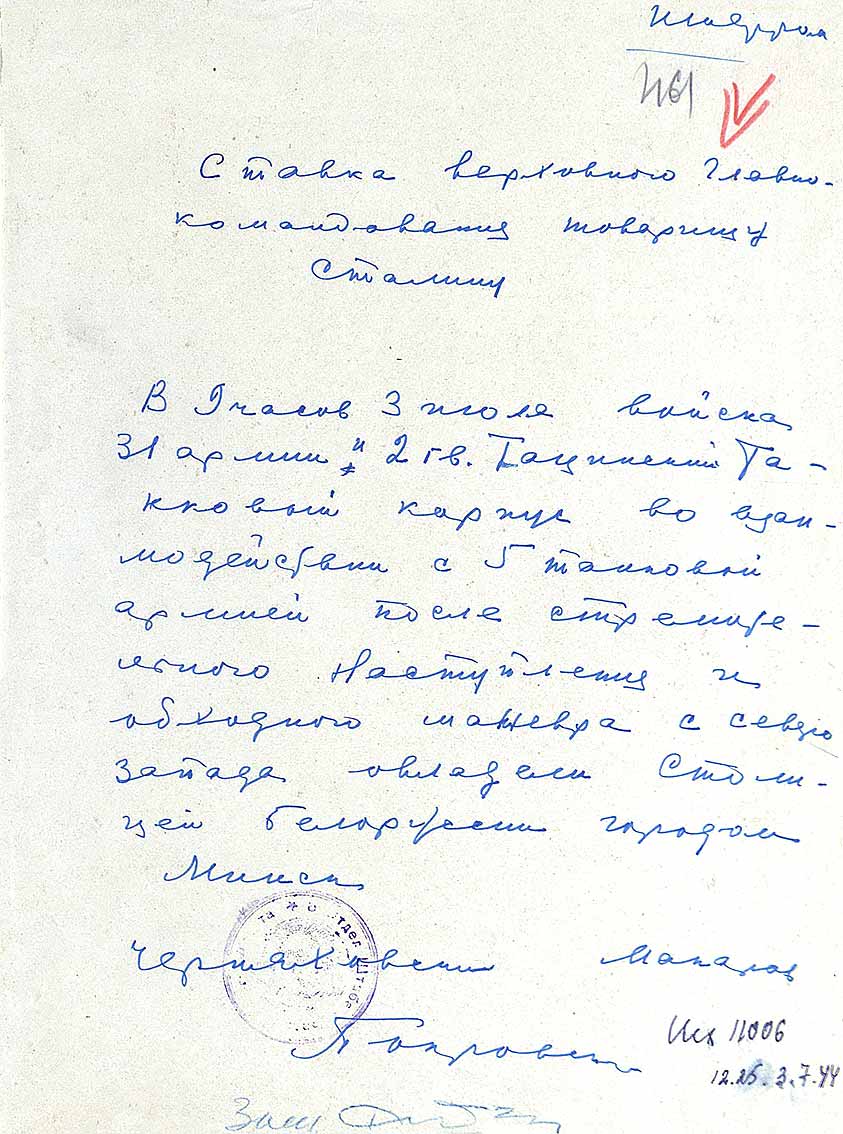 Шифром
1161
Ставка верховного Главно-
командования товарищу
Сталину
В 9 часов 3 июля войска
31 армии и 2 гв. Тацинский Та-
нковый корпус во взаи-
модействии с 5 танковой
армией после стремите-
льного наступления и
обходного маневра с северо
запада овладели Столи-
цей белоруссии городом
Минск
Черняховский Макаров
Покровский
Исх 11006
12.25. 3.7.44